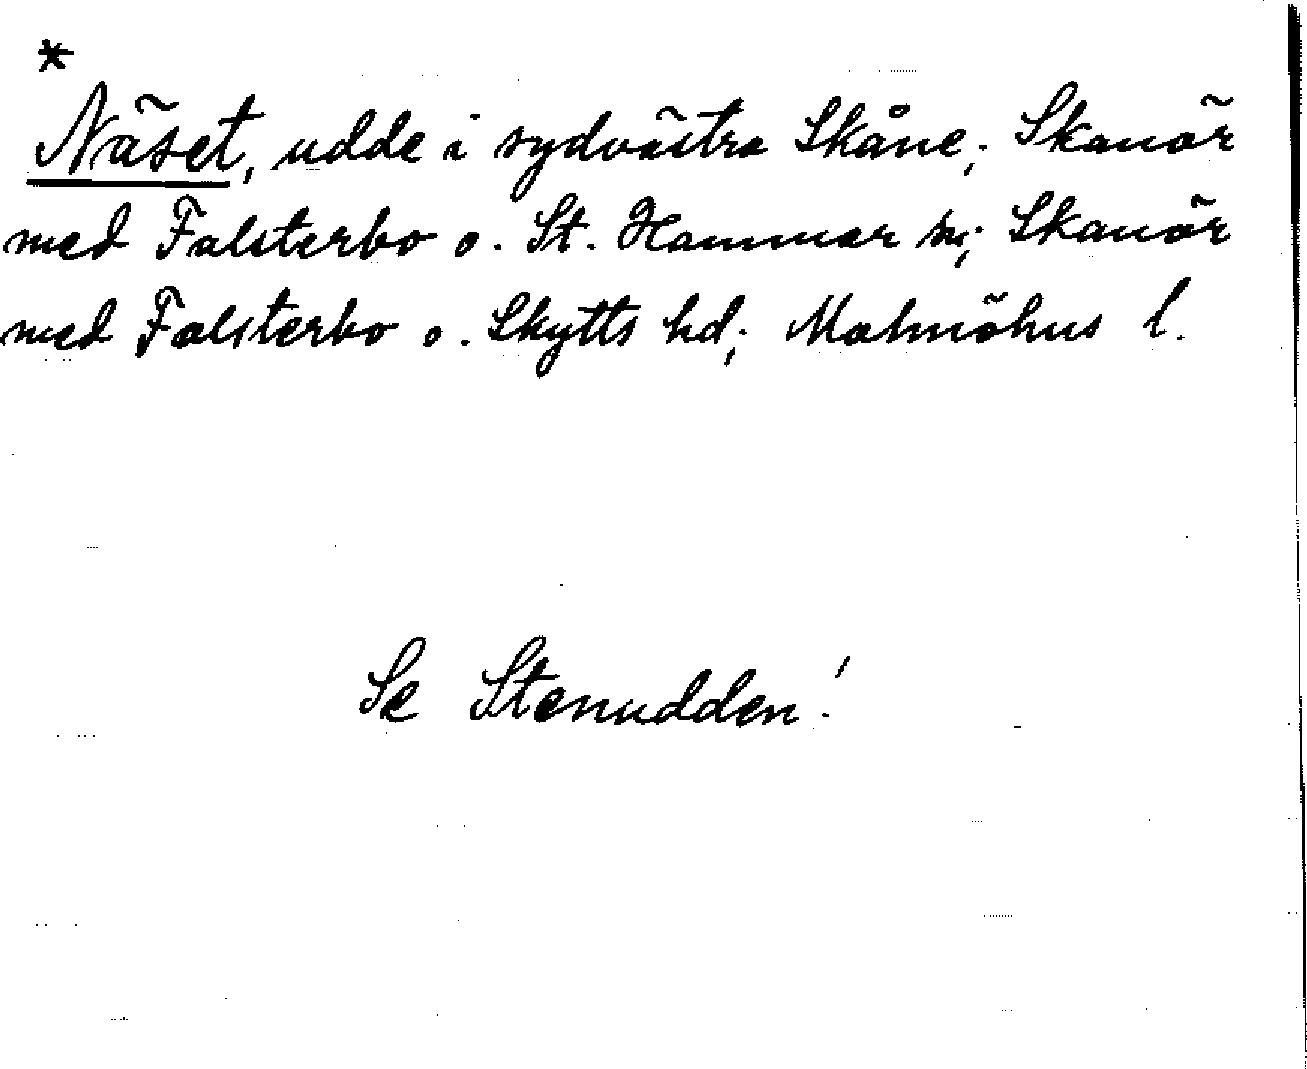 *
Näset, udde i sydvästra Skåne; Skanör
med Falsterbo o. St. Hammar sn; Skanör
med Falsterbo o. Skytts hd; Malmöhus l.
Se Stenudden!